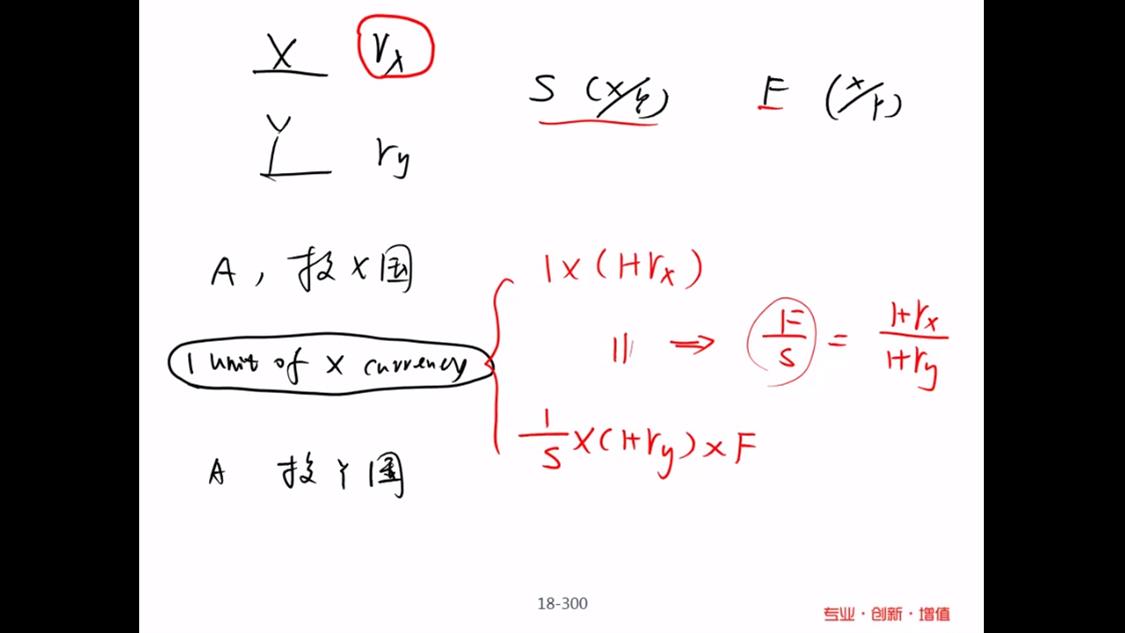 X rx
S (X/Y) F (X/Y)
Y ry
A, 投X国
1×(1+rx)
1 unit of X currency
|| ⇒ F/S = (1+rx)/(1+ry)
1/S ×(1+ry)×F
A 投Y国
18-300
专业·创新·增值